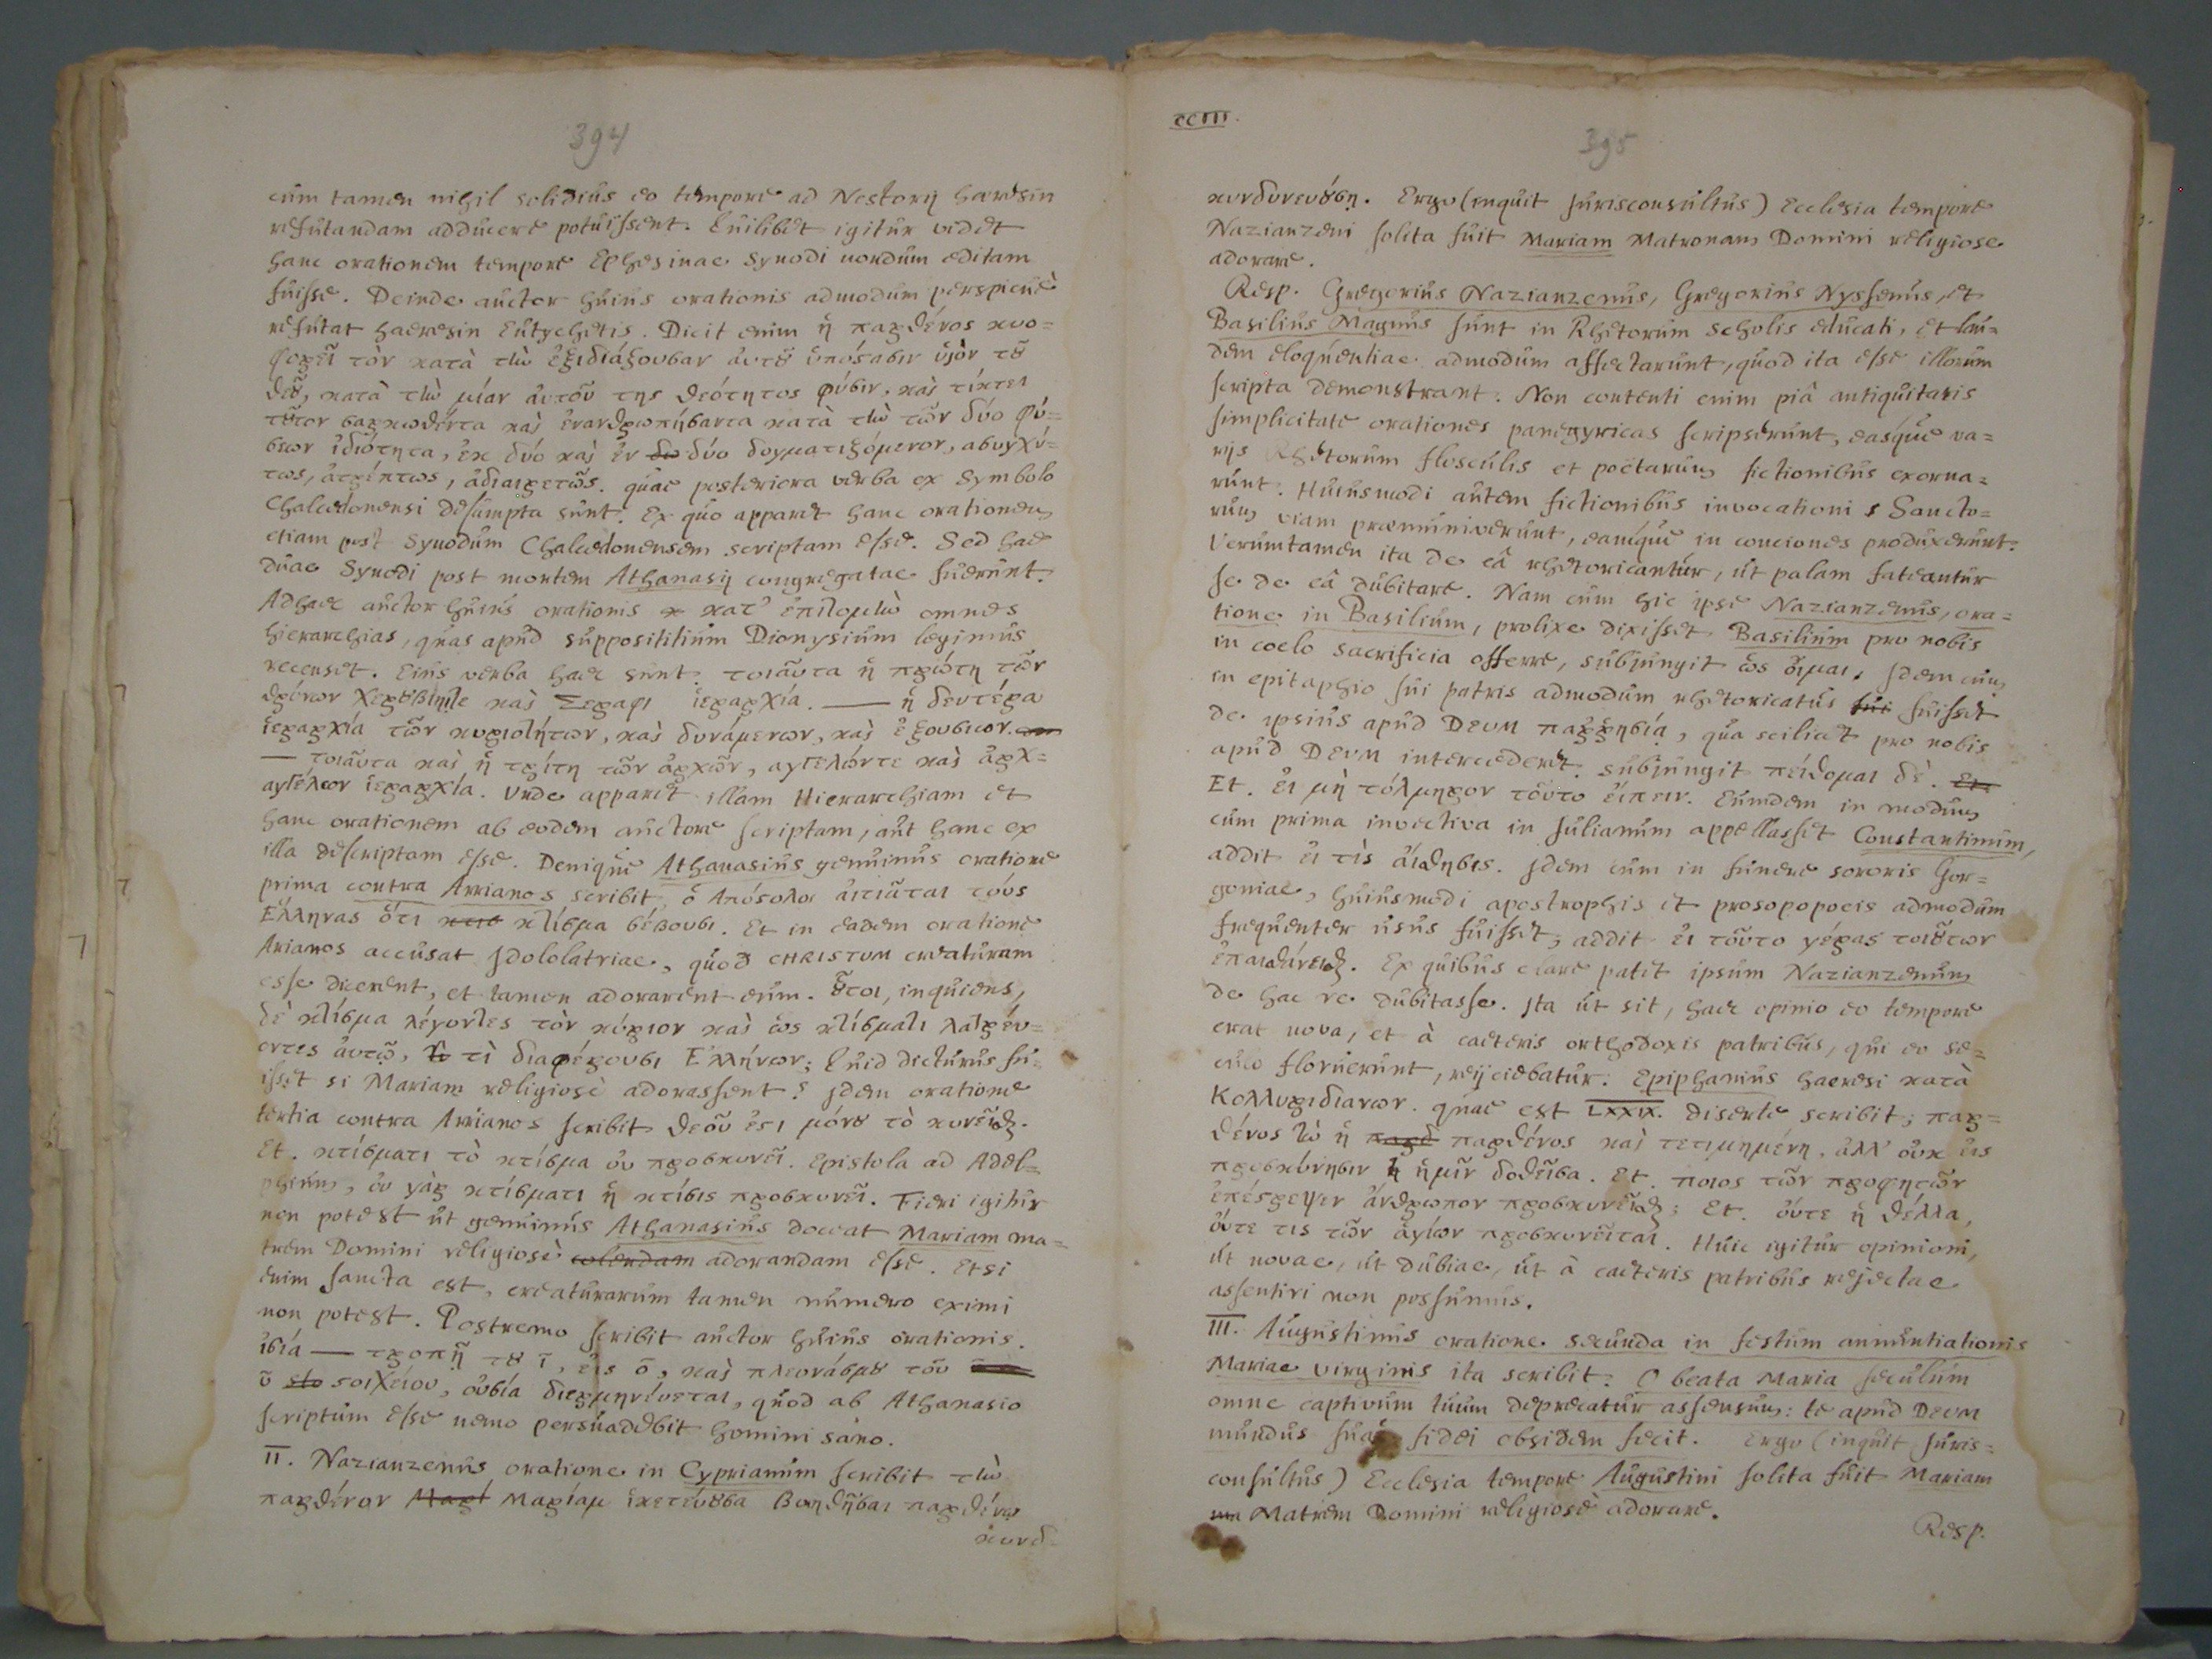 394
cùm tamen nihil solidius eo tempore ad Nestorij haeresin
refutandam adducere potuissent. Cuilibet igitur videt
hanc orationem tempore Ephesinae Synodi nondum editam
fuisse. Deinde auctor huius orationis admodum perspicuè
refutat haeresin Eutychetis. Dicit enim ἡ παρθένος κυο=
φορεῖ τὸν κατὰ τὼ ἐξιδιάζουσαν ἀυτȣ̃ ὑπόστασιν ὑιὸν τȣ̃
θεȣ̃, κατὰ τὼ μίαν ἀυτοῦ της θεότητος φύσιν, καὶ τίκτει
τȣ̃τον σαρκωθέντα καὶ ἐνανθρωπήσαντα κατὰ τὼ τῶν δύο φύ=
σεων ἰδιότητα, ἐκ δύο καὶ ἐν δύο δογματιζόμενον, ασυγχύ=
τως, ἀτρέπτως, ἀδιαιρετῶς. quae posteriora verba ex Symbolo
Chalcedonensi desumpta sunt. Ex quo apparet hanc orationem
etiam post Synodum Chalcedonensem scriptam esse. Sed hae
duae Synodi post mortem Athanasij congregatae fuerunt.
Adhaec auctor huius orationis κατ' ἐπιτομὼ omnes
hierarchias, quas apud supposititium Dionysium legimus
recenset. Eius verba haec sunt. τοιαῦτα ἡ πρώτη τῶν
θρόνων Χερȣβὶμτε καὶ Σεραφι ἱεραρχία. — ἡ δευτέρα
ἱεραρχία τῶν κυριοτήτων, καὶ δυνάμεων, καὶ ἐξουσιων.
— τοιαῦτα καὶ ἡ τρίτη τῶν ἀρχῶν, αγγελώντε καὶ ἀρχ=
αγγέλων ἱεραρχία. Unde apparet illam Hierarchiam et
hanc orationem ab eodem auctore scriptam, aut hanc ex
illa descriptam esse. Denique Athanasius genuinus oratione
prima contra Arrianos scribit, ὁ Απόστολος ἀιτιᾶται τούς
Ελληνας ὅτι κτίσμα σέβουσι. Et in eadem oratione
Arianos accusat Idololatriae, quod CHRISTUM creaturam
esse dicerent, et tamen adorarent eum. ȣ̃τοι, inquiens,
δὲ κτίσμα λέγοντες τὸν κύριον καὶ ὡς κτίσματι λατρέυ=
οντες ἀυτῷ, τὶ διαφέρουσι Ελλήνων; Quid dicturus fu=
isset si Mariam religiosè adorassent? Idem oratione
tertia contra Arrianos scribit θεοῦ ἐστι μόνȣ τὸ κυνεῖσθαι.
Et. κτίσματι τὸ κτίσμα ȣ προσκυνεῖ. Epistola ad Adel=
phium, ȣ γὰρ κτίσματι ἡ κτίσις προσκυνεῖ. Fieri igitur
non potest ut genuinus Athanasius doceat Mariam ma=
trem Domini religiosè colendam adorandam esse. Etsi
enim sancta est, creaturarum tamen numero eximi
non potest. Postremo scribit auctor huius orationis.
ἰσία — τροπῇ τȣ ῑ, ἐις ō, καὶ πλεονάσμȣ τοῦ
ῡ στοιχείου, ȣσία διερμηνεύεται, quod ab Athanasio
scriptum esse nemo persuadebit homini sano.
II. Nazianzenus oratione in Cyprianum scribit τὼ
παρθένον Μαρί Μαρίαμ ἱκετέυȣσα βοηθῆσαι παρθένῳ
κινδ=
CCIII.
395
κινδυνευȣσῃ. Ergo (inquit Jurisconsultus) Ecclesia tempore
Nazianzeni solita fuit Mariam Matronam Domini religiose
adorare.
Resp. Gregorius Nazianzenus, Gregorius Nyssenus, et
Basilius Magnus sunt in Rhetorum scholis educati, et lau=
dem eloquentiae admodum affectarunt, quod ita esse illorum
scripta demonstrant. Non contenti enim piâ antiquitatis
simplicitate orationes panegyricas scripserunt, easque va=
rijs Rhetorum flosculis et poëtarum fictionibus exorna=
runt. Huiusmodi autem fictionibus invocationi s Sancto=
rum viam praemuniverunt, eamque in conciones produxerunt.
Verumtamen ita de eâ rhetoricantur, ut palam fateantur
se de eâ dubitare. Nam cum hic ipse Nazianzenus, ora=
tione in Basilium, prolixe dixisset Basilium pro nobis
in coelo sacrificia offerre, subjungit ὡς ὅιμαι. Idem cum
in epitaphio sui patris admodum rhetoricatus fuisset
de ipsius apud DEUM παῤῥησίᾳ, qua scilicet pro nobis
apud DEUM intercederet, subjungit πείθομαι δέ. Et
Et. ἐι μὴ τόλμηρον τοῦτο ἐίπειν. Eumdem in modum
cum prima invectiva in Julianum appellasset Constantinum,
addit ἐι τὶς ἀίσθησις. Idem cum in funere sororis Gor=
goniae, huiusmodi apostrophis et prosopopoeis admodum
frequenter usus fuisset, addit ἐι τοῦτο γέρας τοιȣ́των
ἐπαισθάνεσθαι. Ex quibus clare patet ipsum Nazianzenum
de hac re dubitasse. Ita ut sit, haec opinio eo tempore
erat nova, et à caeteris orthodoxis patribus, qui eo se=
culo floruerunt, reijciebatur. Epiphanius haeresi κατὰ
Κολλυριδιανων. quae est LXXIX. diserte scribit; παρ=
θένος ὼ ἡ παρθ παρθένος καὶ τετιμημένη. ἀλλ' ȣκ ἐις
προσκύνησιν ἡμῖν δοθεῖσα. Et. ποιος τῶν προφητῶν
ἐπέτρεψεν ἄνθρωπον προσκυνεῖσθαι; Et. ὄυτε ἡ θέλλα,
ὄυτε τις τῶν ἁγίων προσκυνεῖται. Huic igitur opinioni,
ut novae, ut dubiae, ut à caeteris patribus rejectae
assentiri non possumus.
III. Augustinus oratione secunda in festum annuntiationis
Mariae virginis ita scribit: O beata Maria seculum
omne captivum tuum deprecatur assensum: te apud DEUM
mundus suae fidei obsidem fecit. Ergo (inquit Juris=
consultus) Ecclesia tempore Augustini solita fuit Mariam
ma Matrem Domini religiosè adorare.
Resp.